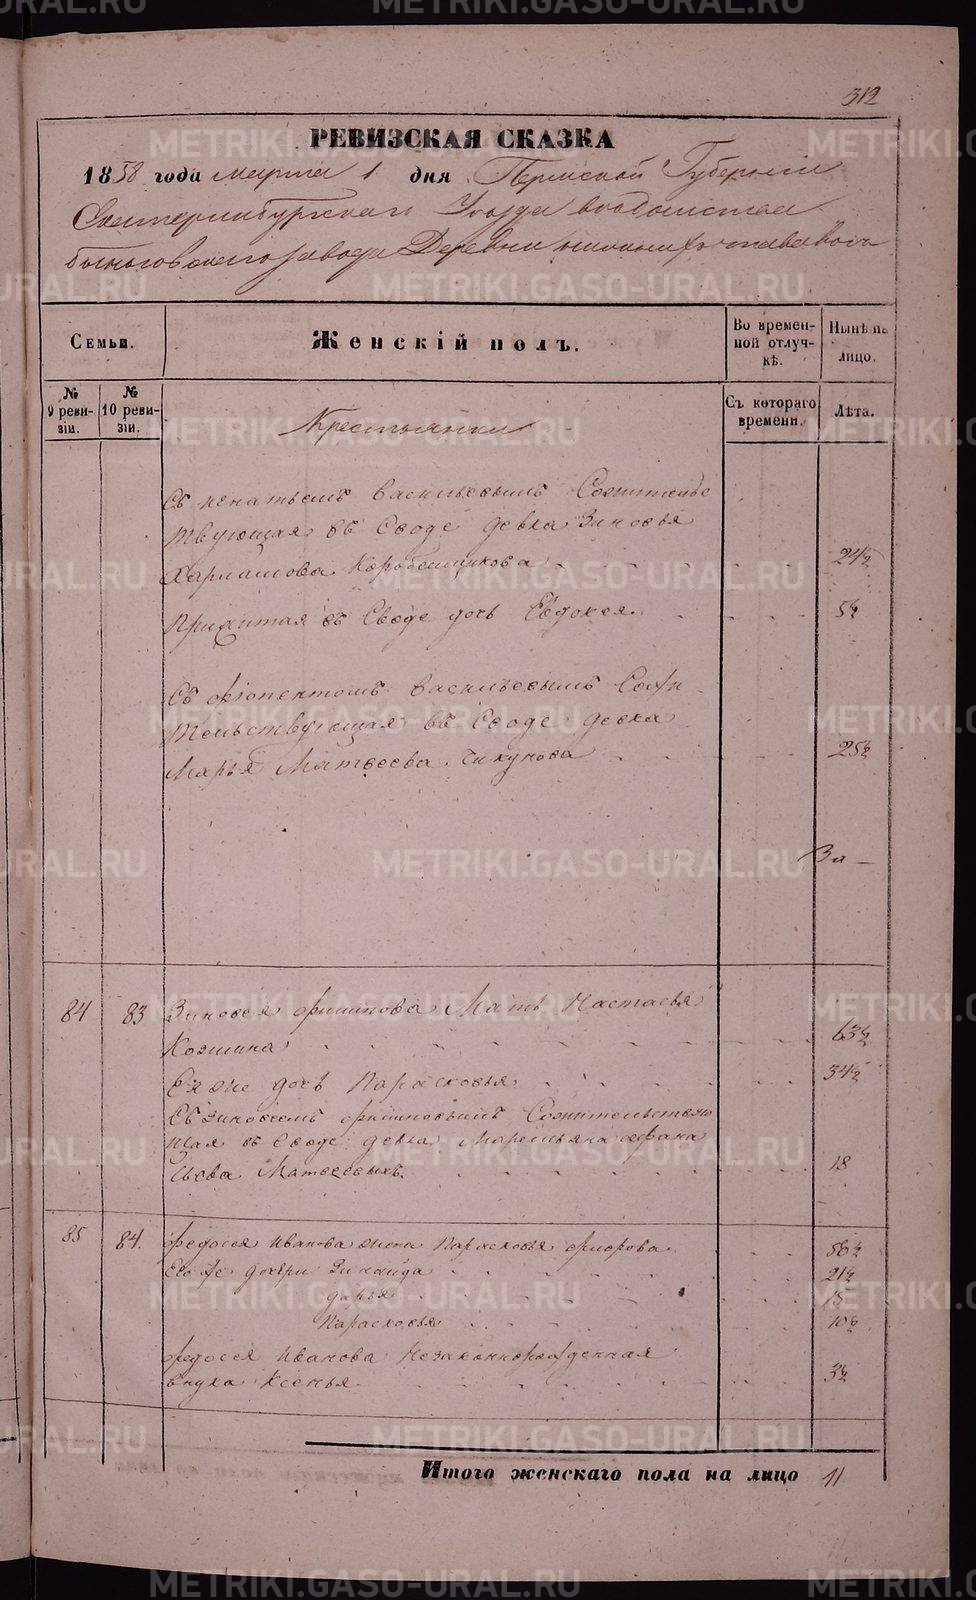 METRIKI.GASO-URAL.RU
312
РЕВИЗСКАЯ СКАЗКА
1858 года марта 1 дня Пермской Губернии
Екатеринбургскаго Уезда ведомства
завода Деревни
Семьи. Женскій полъ. Во времен-ной отлуч-кѣ. Нынѣ на лицо.
№ 9 реви-зіи. № 10 реви-зіи. Съ котораго времени. Лѣта.
Крестьянки
Съ игнатьемъ васильевымъ Сожительс
твующая въ Своде девка Зиновья
Харламова Коробейщикова 24½
Прижитая въ Своде дочь Евдокея 5½
Съ леонтьемъ васильевымъ Сожи
тельствующая въ Своде девка
Марья Матвеева Чикунова 25½
За
84 83 Зиновея филипова Мать Настасья
Козмина 63½
Ея же дочь Парасковья 34½
Съ зиновеемъ филиповымъ Сожительствую
щая въ Своде девка Маремьяна афана
сьева Матвеевыхъ 18
85 84. федосея Иванова жена Парасковья 56½
Его же дочери Зинаида 21½
дарья 15
Парасковья 10½
федосея Иванова Незаконнорожденная
внука Ксенья 3½
Итого женскаго пола на лицо 11